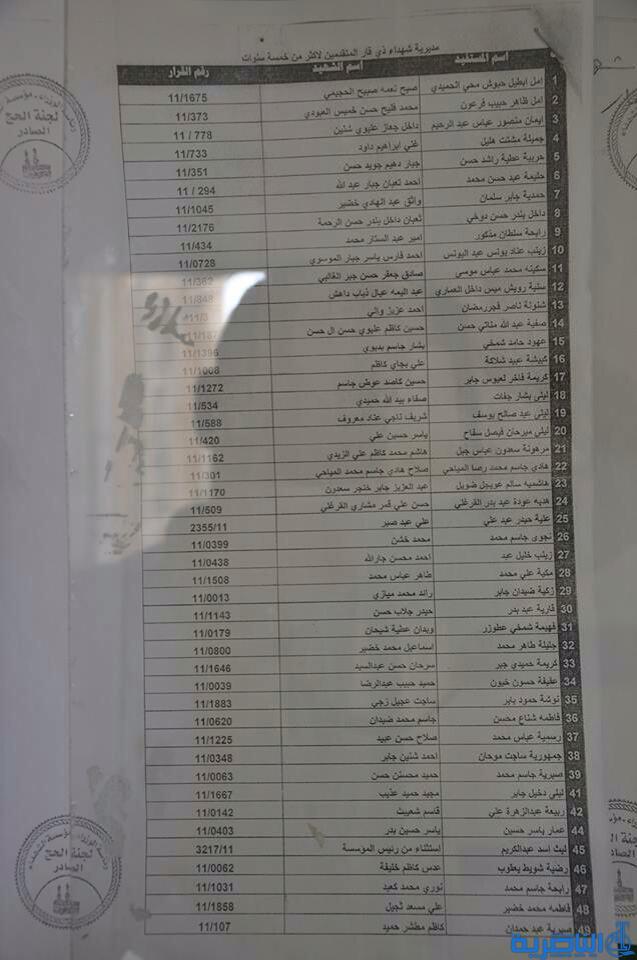 مديرية شهداء ذي قار المتقدمين لاكثر من خمسة سنوات
اسم المستفيد اسم الشهيد رقم القرار
1 امل ابطيل حبوش محي الحميدي صبح نعمه صبيح الحجيمي 11/1675
2 امل ظاهر حبيب فرعون محمد فليح حسن خميس العبودي 11/373
3 ايمان منصور عباس عبد الرحيم داخل جهاز عليوي شنين 11 / 778
4 جميلة مشتت هليل غني ابراهيم داود 11/733
5 حربية عطية راشد حسن جبار دهيم جويد حسن 11/351
6 حليمة عبد حسن محمد احمد نعبان جبار عبد الله 11 / 294
7 حمدية جابر سلمان واثق عبد الهادي خضير 11/1045
8 داخل بندر حسن دوخي نعبان داخل بندر حسن الرحمة 11/2176
9 رابحة سلطان مذكور امير عبد الستار محمد 11/434
10 زينب عناد يونس عبد اليونس احمد فارس ياسر جبار الموسوي 11/0728
11 سكينه محمد عباس موسى صادق جعفر حسن جبر الغالبي 11/362
12 سنية رويش ميس داخل العماري عبد اليمه عيال ذياب داهش 11/848
13 شنونة ناصر فجررمضان احمد عزيز والي 11/3
14 صفية عبد الله مناتي حسن حسين كاظم عليوي حسن ال حسن
15 عهود حامد شمخي بشار جاسم بديوي 11/1396
16 كبيشة عبيد شلاكة علي بجاي كاظم 11/1008
17 كريمة فاخر لعيوس جابر حسين كاصد عوض جاسم 11/1272
18 ليلى بشار جفات صفاء عبد الله حميدي 11/534
19 ليلى عبد صالح يوسف شريف ناجي عناد معروف 11/588
20 ليلى ميرحان فيصل سفاح ياسر حسين علي 11/420
21 مرهونة سعدون عباس جبل هاشم محمد كاظم علي الزيدي 11/1162
22 هادي جاسم محمد رضا المياحي صلاح هادي جاسم محمد المياحي 11/301
23 هاشميه سالم عويجل ضويل عبد العزيز جابر خنجر سعدون 11/1170
24 هدبه عودة عبد بدر القرغلي حسن علي قمر مشاري القرغلي 11/509
25 علية حيدر عبد علي علي عبد صبر 2355/11
26 نجوى جاسم محمد محمد خشن 11/0399
27 زينب خليل عبد احمد محسن جارالله 11/0438
28 مكية علي محمد طاهر عباس محمد 11/1508
29 زكية ضيدان جابر رائد محمد ميازي 11/0013
30 قارية عبد بدر حيدر جلاب حسن 11/1143
31 فهيمة شمخي عطوزر وبدان عطية شيحان 11/0179
32 جليلة طاهر محمد اسماعيل محمد خضير 11/0800
33 كريمة حميدي جبر سرحان حسن عبدالسيد 11/1646
34 عفيفة حسون خيون حميد حبيب عبدالرضا 11/0039
35 نوشة حمود بابر ساجت عجيل زجي 11/1883
36 فاطمه شناع محسن جاسم محمد ضيدان 11/0620
37 رسمية عباس محمد صلاح حسن عبيد 11/1225
38 جمهورية ساجت موحان احمد شنين جابر 11/0348
39 صبرية جاسم محمد حميد محسن حسن 11/0063
41 ليلى دخيل جابر مجيد حميد عذيب 11/1667
42 ربيعة عبدالزهرة علي قاسم شعيبث 11/0142
44 عمار ياسر حسين ياسر حسين بدر 11/0403
45 ليث اسد عبدالكريم استثناء من رئيس المؤسسة 3217/11
46 رضية شويط يعقوب عدس كاظم خليفة 11/0062
47 رابحة جاسم محمد نوري محمد كعيد 11/1031
48 فاطمه محمد خضير علي مسعد ثجيل 11/1858
49 صبرية عبد حمدان كاظم مطشر حميد 11/107
لجنة الحج
الصادر
لجنة الحج
الصادر
الناصرية